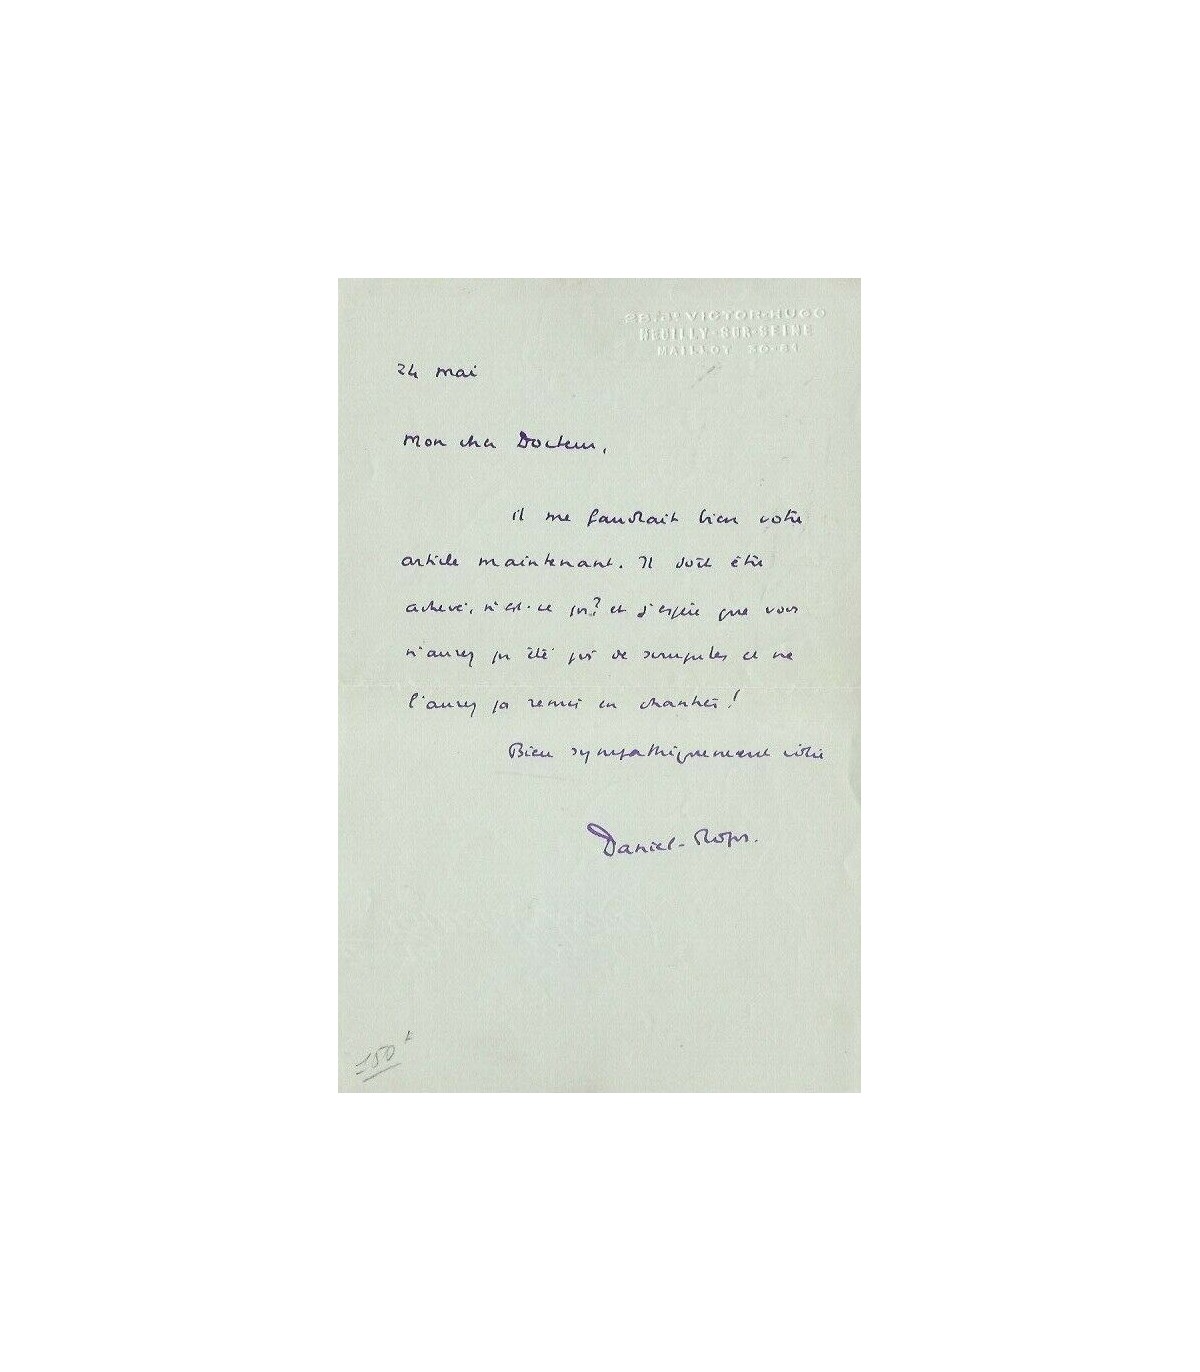 28, Bd VICTOR-HUGO
NEUILLY-SUR-SEINE
MAILLOT
24 mai
Mon cher Docteur,
il me faudrait bien votre
article maintenant. Il doit être
achevé, n'est-ce pas? et j'espère que vous
n'aurez pas été pris de scrupules et ne
l'aurez pas remis en chantier!
Bien sympathiquement vôtre
Daniel-Rops.
150